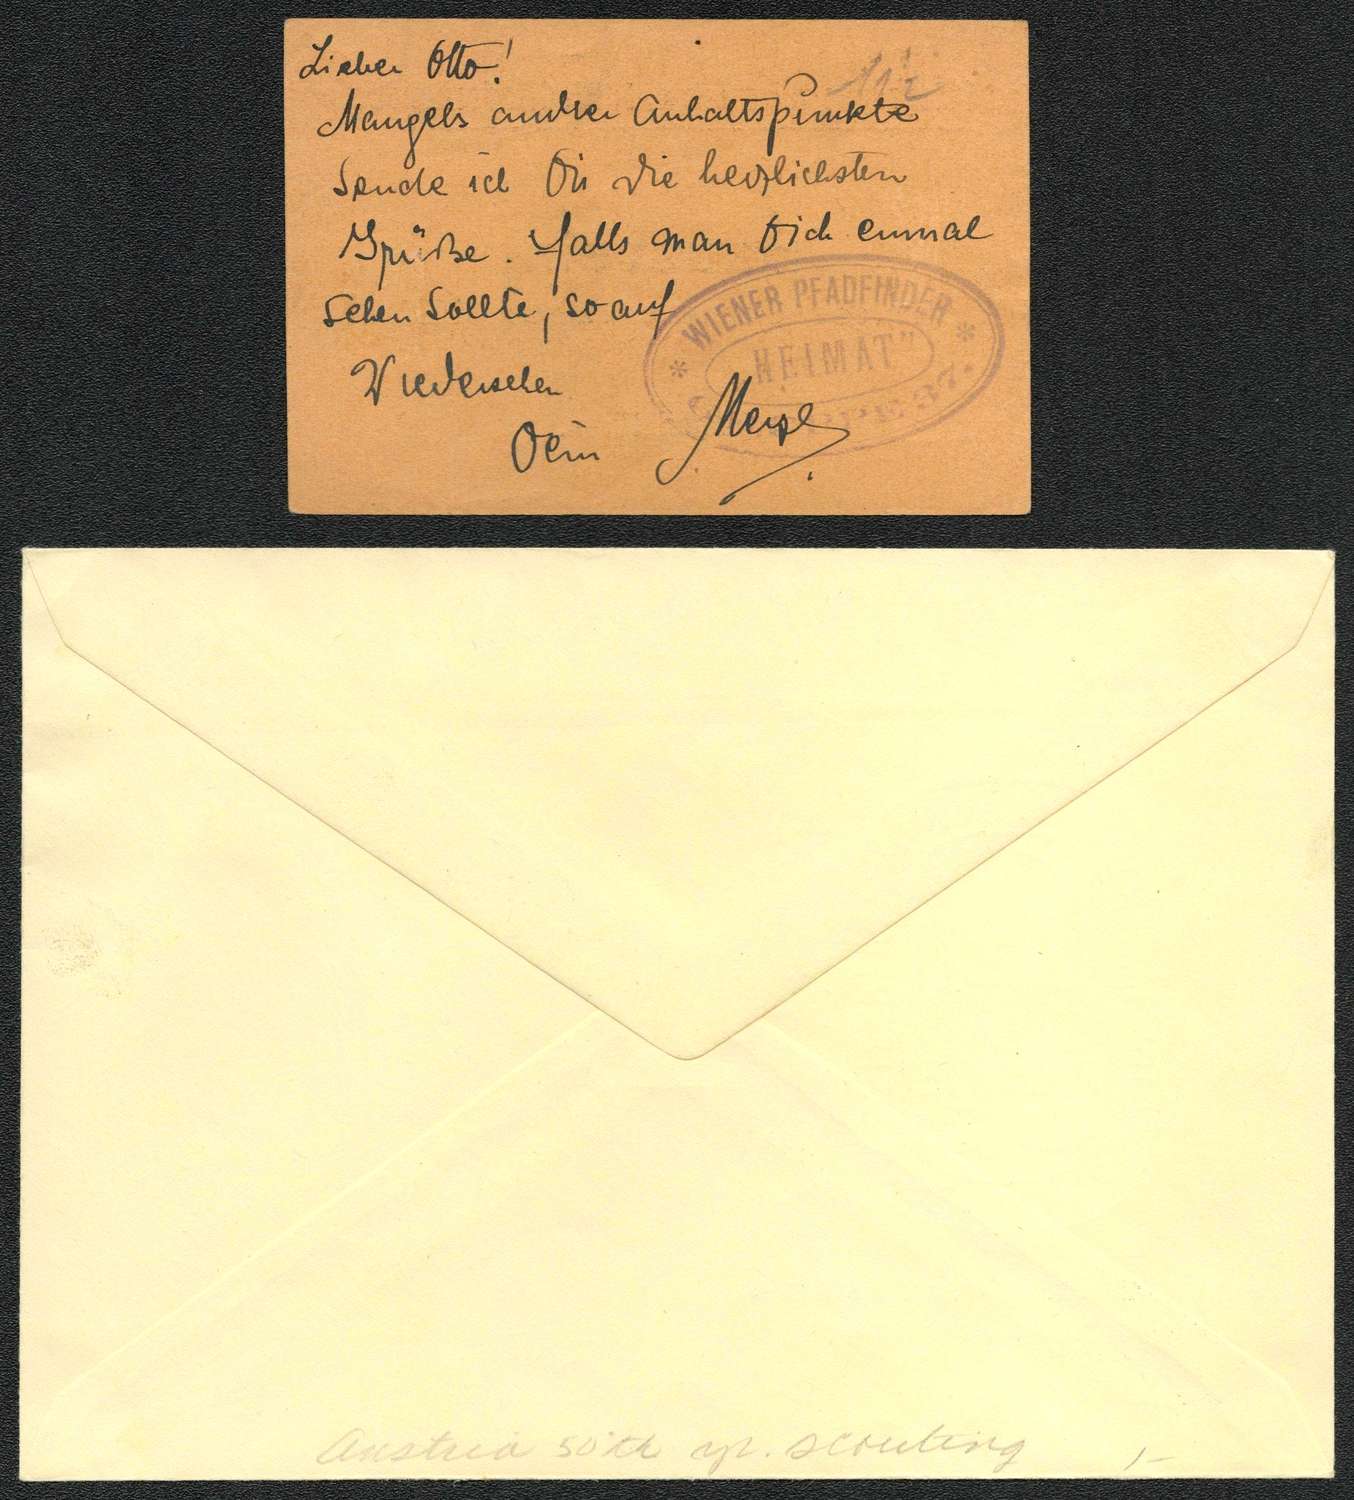 Lieber Otto!
11½
Mangels andrer Anhaltspunkte
sende ich Dir die herzlichsten
Grüße. Falls man Dich einmal
sehen sollte, so auf
Wiedersehen
Dein
* WIENER PFADFINDER *
"HEIMAT"
GRUPPE 32.
Austria 50th yr. scouting 1-